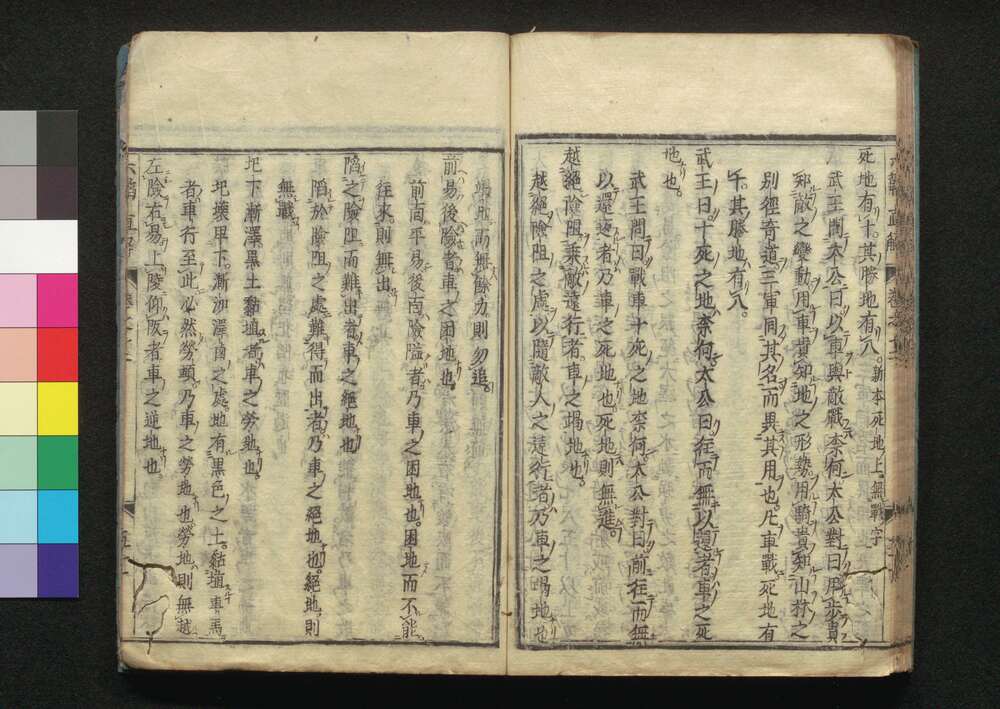 死地有十其勝地有八。新本死地上無戰字
武王問太公曰以車與敵戰柰何太公對曰用步貴
知敵之變動用車貴知地之形勢用騎貴知山林之
別徑竒道三軍同其名而異其用也凡車戰死地有
十其勝地有八。
武王曰十死之地柰何太公曰往而無以還者車之死
地也
武王問曰戰車十死之地柰何太公對曰前往而無
以還返者乃車之死地也死地則無進。
越絕險阻乘敵遠行者車之竭地也
越絕險阻之處以隨敵人之遠行者乃車之竭地也
竭地而無餘力則勿追。
前易後險者車之困地也
前面平易後面險隘者乃車之困地也。困地而不能
往來則無出
陷之險阻而難出者車之絕地也
陷於險阻之處難得而出者乃車之絕地也。絕地則
無戰
圯下漸澤黑土黏埴者車之勞地也
圯壞卑下漸洳澤鹵之處地有黑色之土。黏埴車馬
者車行至此必然勞頓乃車之勞地也勞地則無越
左險右易上陵仰阪者車之逆地也